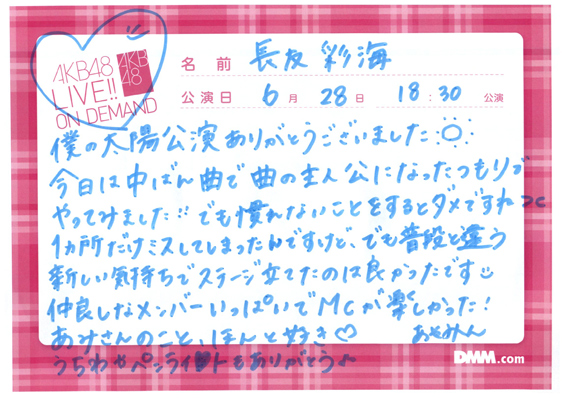 AKB48
LIVE!!
ON DEMAND
AKB48
名前 長友彩海
公演日 6月28日 18:30公演
僕の太陽公演ありがとうございました
今日は中ばん曲で曲の主人公になったつもりで
やってみました!! でも慣れないことをするとダメですね
1ヵ所だけミスしてしまったんですけど、でも普段と違う
新しい気持ちでステージ立てたのは良かったです
仲良しなメンバーいっぱいでMCが楽しかった!
あみさんのこと、ほんと好き♡ あやみん
うちわやペンライトもありがとう♪
DMM.com